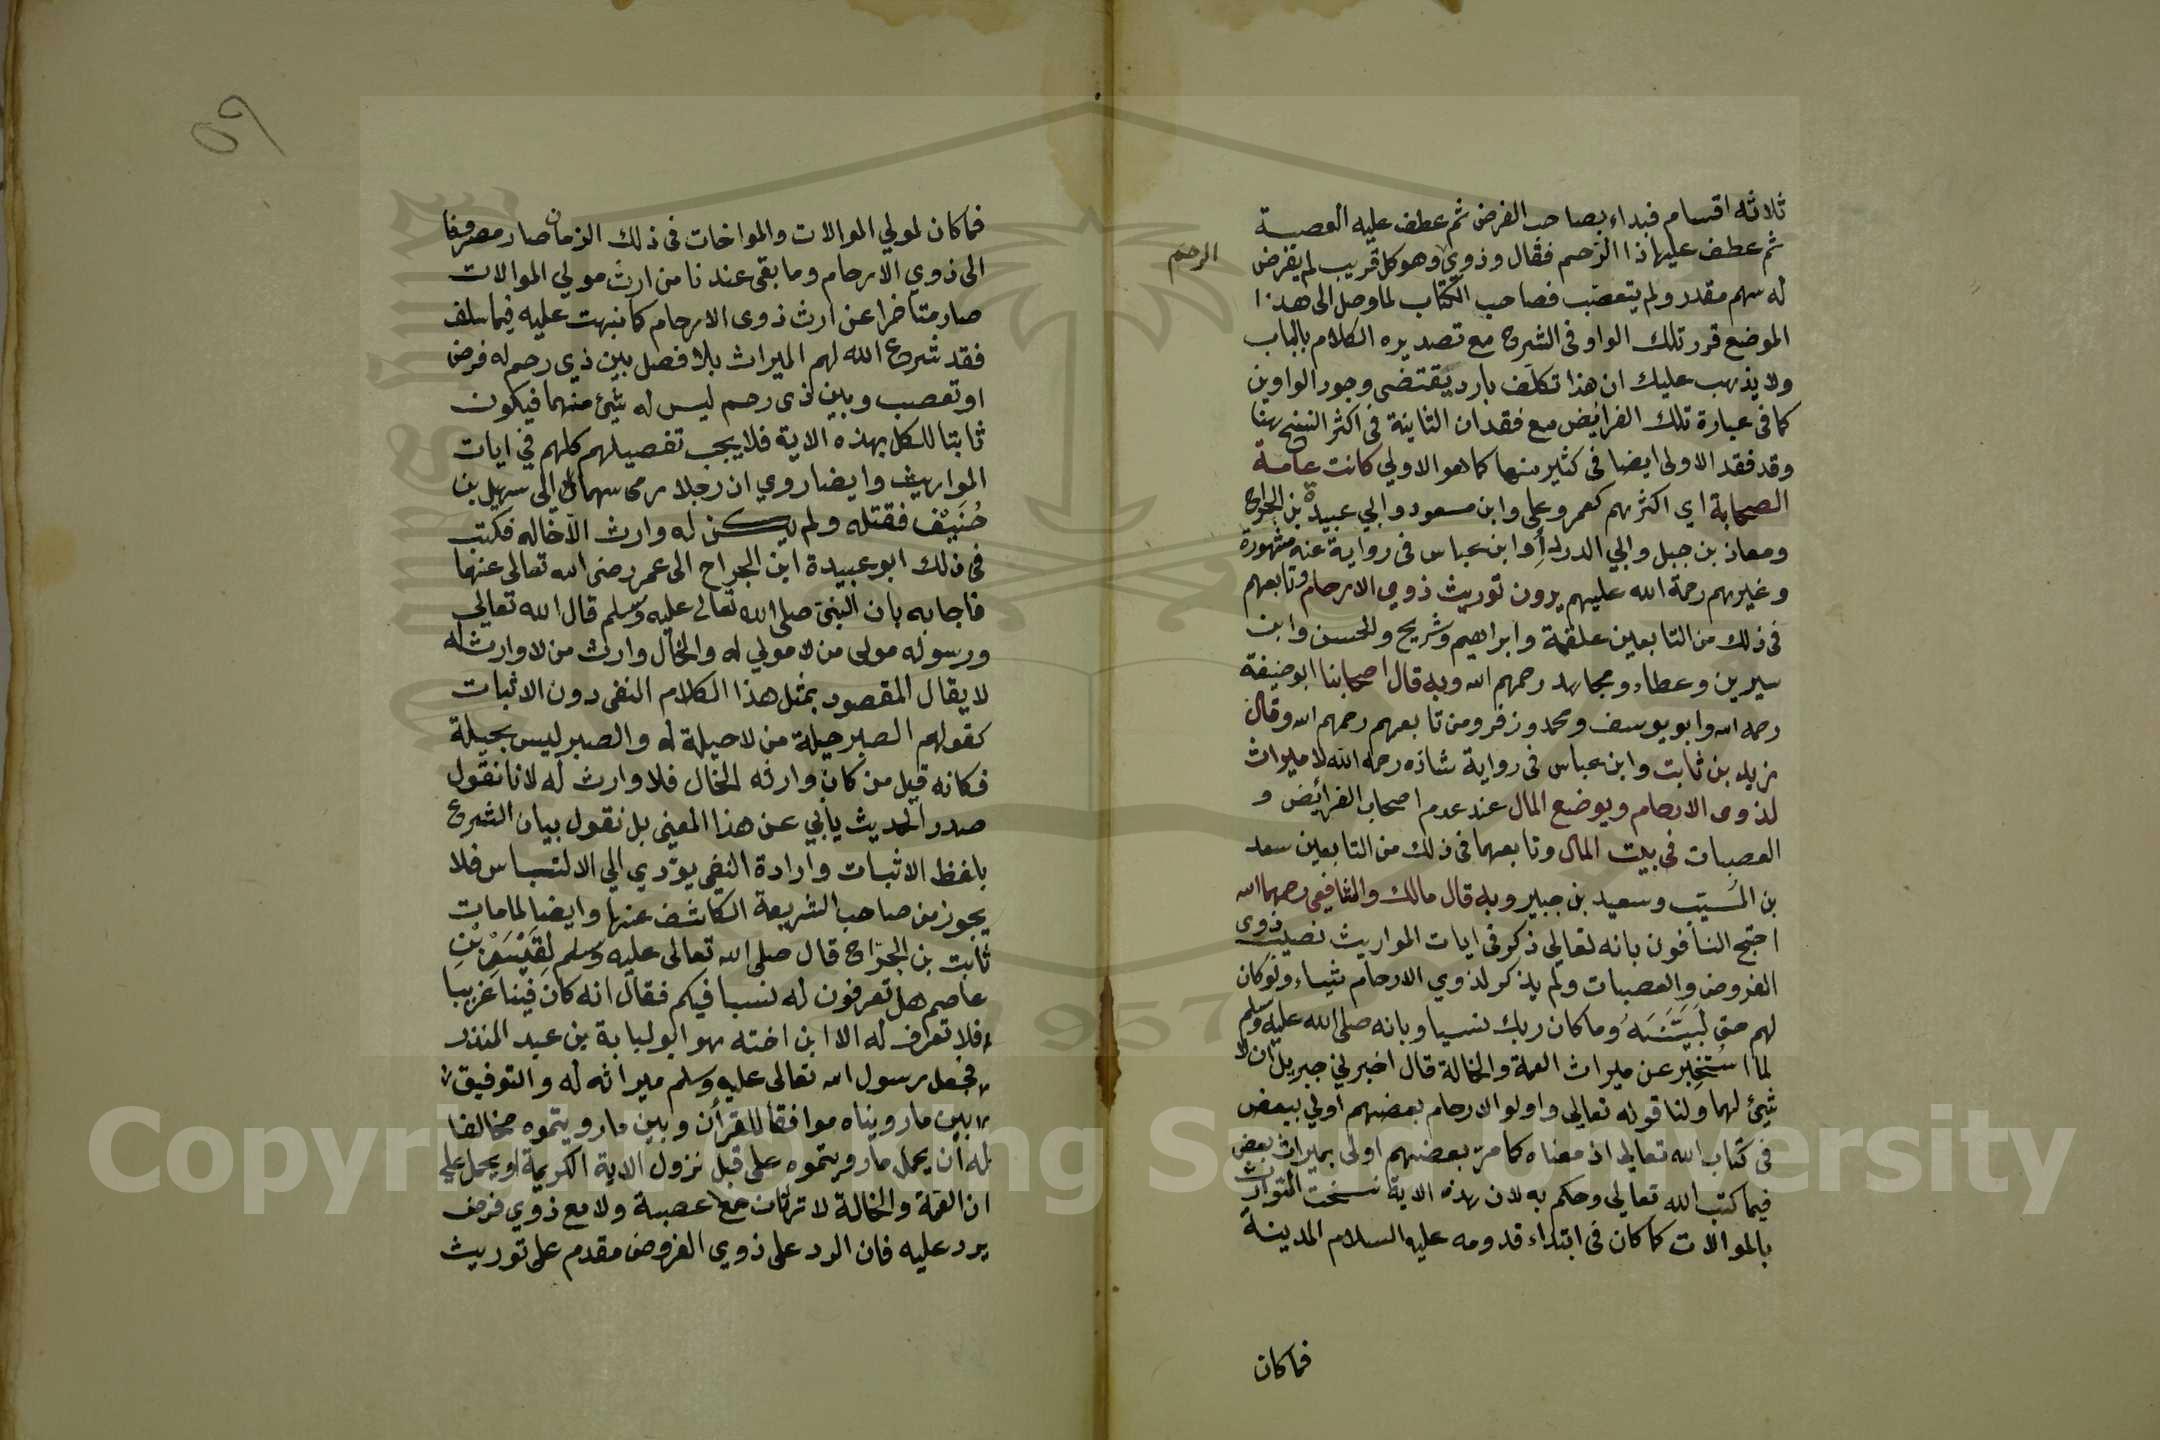 ثلاثه اقسام فبداء بصاحب الفرض ثم عطف عليه العصبة
ثم عطف عليها ذا الرحم فقال وذوي وهو كل قريب لم يفرض
الرحم
له سهم مقدر ولم يتعصب فصاحب الكتاب لما وصل الى هذا
الموضع قرر تلك الواو فى الشرح مع تصديره الكلام بالباب
ولا يذهب عليك ان هذا تكلف بارد يقتضى وجود الواوين
كما فى عبارة تلك الفرائض مع فقدان الثانية فى اكثر النسخ ههنا
وقد فقد الاولى ايضا فى كثير منها كما هو الاولي كانت عامة
الصحابة اي اكثرهم كعمر وعلي وابن مسعود وابي عبيدة بن الجراح
ومعاذ بن جبل وابي الدرداء وابن عباس فى رواية عنه مشهورة
وغيرهم رحمة الله عليهم يرون توريث ذوي الارحام وتابعهم
فى ذلك من التابعين علقمة وابراهيم وشريح والحسن وابن
سيرين وعطاء ومجاهد رحمهم الله وبه قال اصحابنا ابو حنيفة
رحمه الله وابو يوسف ومحمد وزفر ومن تابعهم رحمهم الله وقال
زيد بن ثابت وابن عباس فى رواية شاذه رحمه الله لا ميراث
لذوى الارحام ويوضع المال عند عدم اصحاب الفرائض و
العصبات فى بيت المال وتابعهما فى ذلك من التابعين سعد
بن المسيب وسعيد بن جبير وبه قال مالك والشافعى رحمهما الله
احتج النافون بانه تعالى ذكر فى ايات المواريث نصيب ذوى
الفروض والعصبات ولم يذكر لذوي الارحام شيئاء ولو كان
لهم حق لبينه وما كان ربك نسيا وبانه صلى الله عليه وسلم
لما استخبر عن ميراث العمة والخالة قال اخبرني جبريل ان لا
شيئ لهما ولنا قوله تعالى واولوا الارحام بعضهم اولى ببعض
فى كتاب الله تعالى اذ معناه كما مر بعضهم اولى بميراث بعض
فيما كتب الله تعالى وحكم به لان بهذه الاية نسخت التوارث
بالموالات كما كان فى ابتداء قدومه عليه السلام المدينة
فما كان
٥٩
فما كان لمولي الموالات والمواخات فى ذلك الزمان صار مصروفا
الى ذوي الارحام وما بقى عندنا من ارث مولي الموالات
صار متأخرا عن ارث ذوى الارحام كما نبهت عليه فيما سلف
فقد شروع الله لهم الميراث بلا فصل بين ذي رحم له فرض
او تعصب وبين ذى رحم ليس له شيئ منهما فيكون
ثابتا للكل بهذه الاية فلا يجب تفصيلهم كلهم في ايات
المواريث وايضا روي ان رجلا رمى سهما الى سهيل بن
حُنَيْف فقتله ولم يكن له وارث الا خاله فكتب
فى ذلك ابو عبيدة ابن الجراح الى عمر رضى الله تعالى عنهما
فاجابه بان النبى صلى الله تعالى عليه وسلم قال الله تعالى
ورسوله مولى من لا مولي له والخال وارث من لا وارث له
لا يقال المقصود بمثل هذا الكلام النفى دون الاثبات
كقولهم الصبر حيلة من لا حيلة له والصبر ليس بحيلة
فكانه قيل من كان وارثه الخال فلا وارث له لانا نقول
صدر الحديث يابي عن هذا المعنى بل نقول بيان الشروع
بلفظ الاثبات وارادة النفى يؤدي الى الالتباس فلا
يجوز من صاحب الشريعة الكاشف عنها وايضا لما مات
ثابت بن الجراح قال صلى الله تعالى عليه وسلم لقيس بن
عاصم هل تعرفون له نسبا فيكم فقال انه كان فينا غريبا
فلا تعرف له الا ابن اخته هو ابو لبابة بن عبد المنذر
فجعل رسول الله تعالى عليه وسلم ميراثه له والتوفيق
بين ما رويناه موافقا للقرأن وبين ما رويتموه مخالفا
له ان يحمل ما رويتموه على قبل نزول الاية الكريمة او يحمل على
ان العمة والخالة لا ترثان مع عصبة ولا مع ذوي فرض
يرد عليه فان الرد على ذوي الفروض مقدم على توريث
Copyright © King Saud University
1957